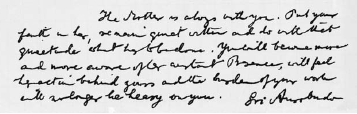 The Mother is always with you. Put your
faith in her, remain quiet within and do with that
quietude what has to be done. You will become more
and more aware of her constant Presence, will feel
her action behind yours and the burden of your work
will no longer be heavy on you. Sri Aurobindo